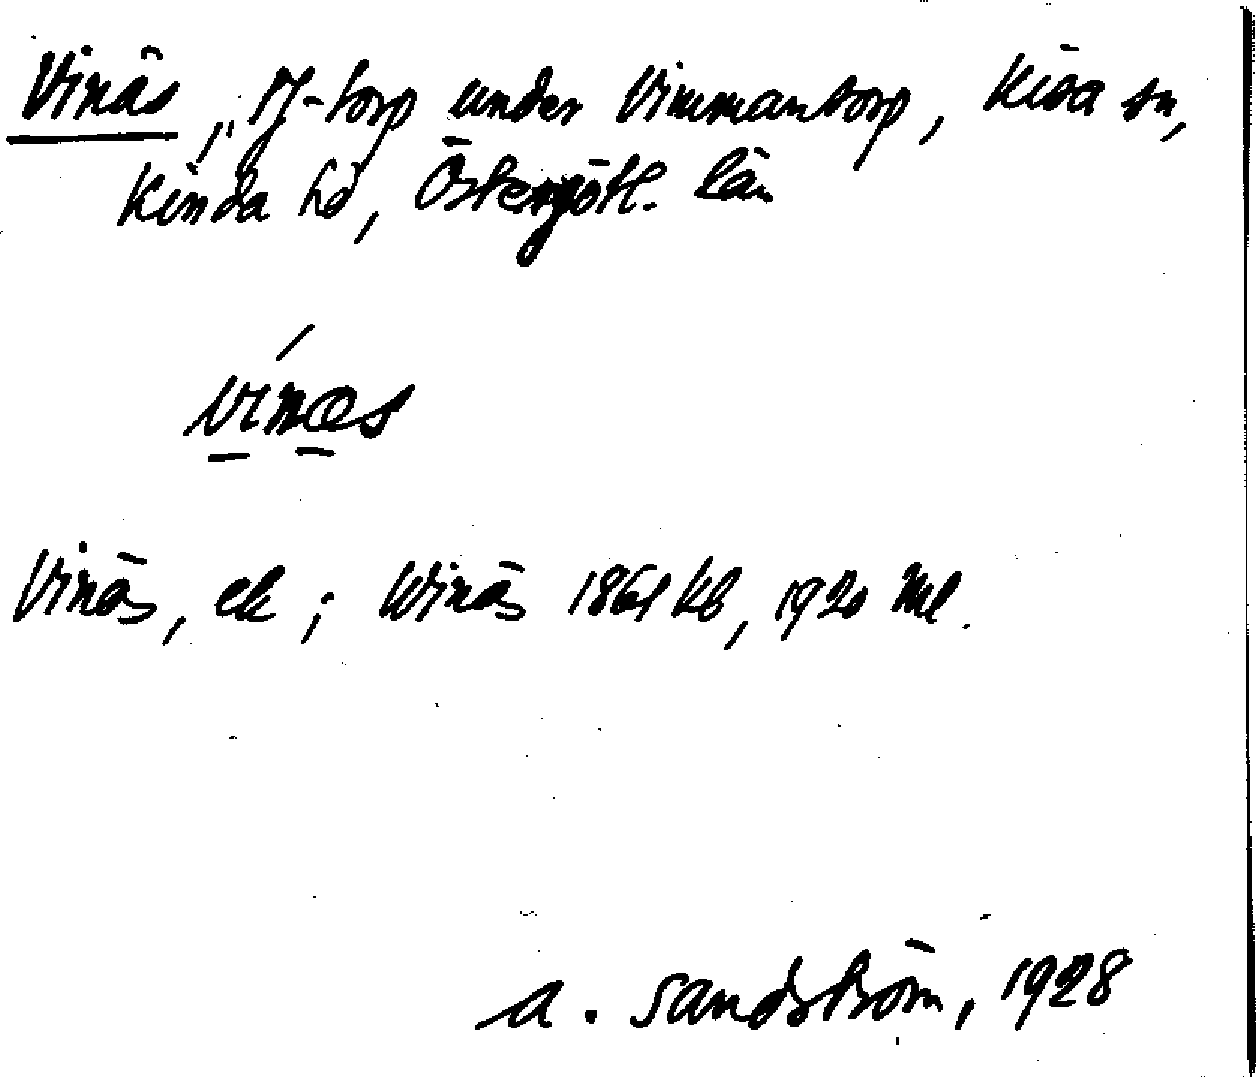 Vinäs, ly-torp under Vimmantorp, Kisa sn,
Kinda hd, Östergötl. län
vínæs
Vinäs, ek; Winäs 1861 kb, 1920 Ml.
A. Sandström, 1928